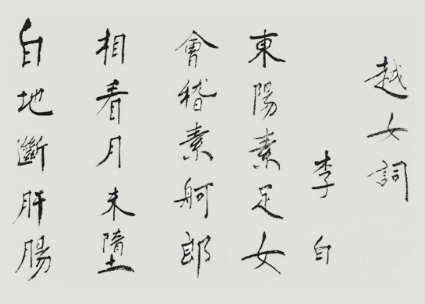 越女詞
李白
東陽素足女
會稽素舸郎
相看月未墮
白地斷肝腸